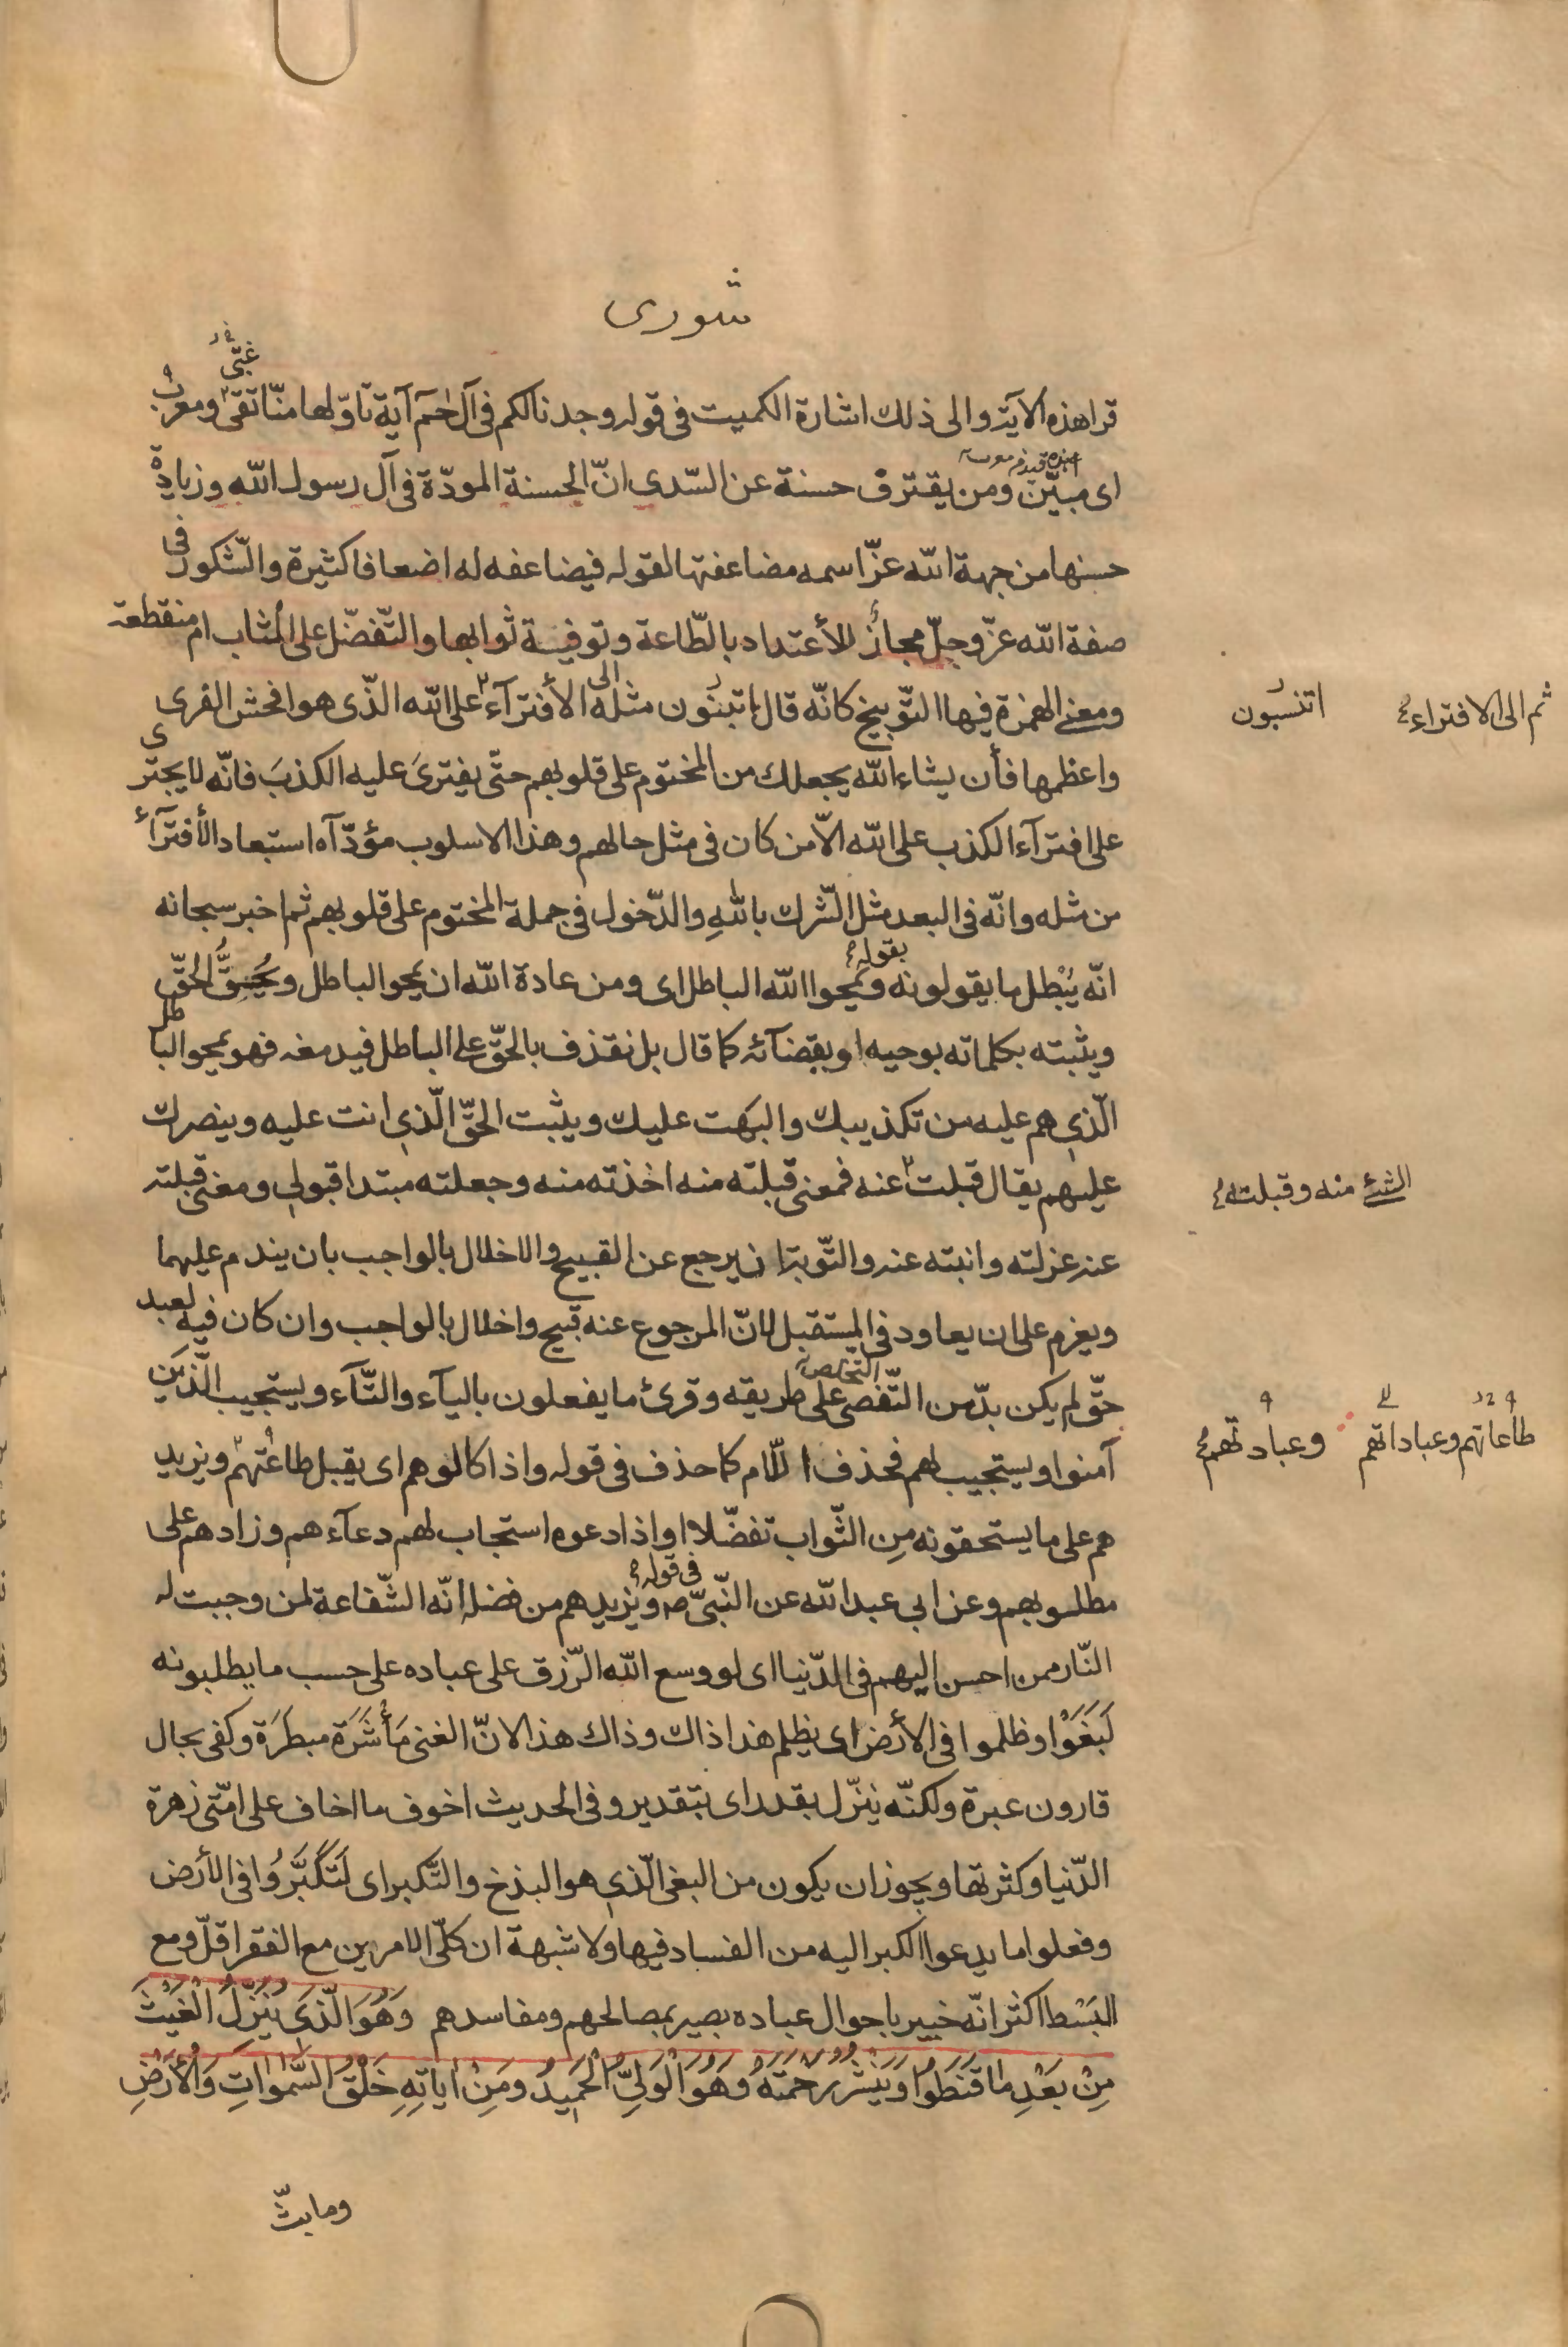 شورى
غبّى
قرا هذه الآية والى ذلك اشارة الكميت فى قوله وجدنا لكم فى آل حٰمٓ آية تاوّلها منّا تقىّ ومعرب
اى مبيّن ومن يقترف حسنة عن السّدى انّ الحسنة المودّة فى آل رسول الله وزيادة
حسنها من جهة الله عزّ اسمه مضاعفتها لقوله فيضاعفه له اضعافا كثيرة والشّكور فى
صفة الله عزّ وجلّ مجاز للأعتداد بالطّاعة وتوفية ثوابها والتّفضّل على المُثاب ام منقطعة
ومعنى الهمزة فيها التّوبيخ كانّه قال اتبنون مثله الى الأفترآء على الله الّذى هو افحش الفرى
ثم الى الافتراء
اتنسبون
واعظمها فأن يشاء الله يجعلك من المختوم على قلوبهم حتّى يفترىَ عليه الكذبَ فانّه لا يجترى
على افترآء الكذب على الله الاّ من كان فى مثل حالهم وهذا الاسلوب مؤدّاه استبعاد الأفترآء
من مثله وانّه فى البعد مثل الشّرك باللهِ والدّخول فى جملة المختوم على قلوبهم ثم اخبر سبحانه
انّه يُبْطل ما يقولونه بقوله ويمحوا الله الباطل اى ومن عادة الله ان يمحو الباطل ويُحِقُّ الحقّ
ويثبته بكلماته بوحيه او بقضآئه كما قال بل نقذف بالحقّ على الباطل فيدمغه فهو يمحو الباطل
الّذى هم عليه من تكذيبك والبَهت عليك ويثبت الحقّ الّذى انت عليه وينصرك
عليهم يقال قبلت عنه فمعنى قبلته منه اخذته منه وجعلته مبتدا قبولى ومعنى قبلته
الشئ منه وقبلته
عنه عزلته وانبته عنه والتّوبة ان يرجع عن القبيح والاخلال بالواجب بان يندم عليهما
ويعزم على ان يعاود فى المستقبل لانّ المرجوع عنه قبيح واخلال بالواجب وان كان فيه لعبد
حقّ لم يكن بدّ من التّفصى على طريقه وقرئ ما يفعلون باليآء والتّآء ويستجيب الّذين
طاعاتهم وعباداتهم
وعبادتهم
آمنوا ويستجيب لهم فحذف اللّام كما حذف فى قوله واذا كالوهم اى يقبل طاعتهم ويزيد
هم على ما يستحقونه مِن الثّواب تفضّلا او اذا دعوه استجاب لهم دعآءهم وزادهم على
مطلوبهم وعن ابى عبد الله عن النّبىّ ص فى قوله ويزيدهم من فضله انّه الشّفاعة لمن وجبت له
النّار ممن احسن اليهم فى الدّنيا اى لو وسع الله الرّزق على عباده على حسب ما يطلبونه
لَبَغَوْا وظلموا فى الأرض اى يظلم هذا ذاك وذاك هذا لانّ الغنى مَأْشَرَة مبطَرَة وكفى بحال
قارون عبرة ولكنّه ينزّل بقدر اى بتقدير وفى الحديث اخوف ما اخاف على امّتى زهرة
الدّنيا وكثرتها ويجوز ان يكون من البغى الّذى هو البذخ والتّكبر اى لَتَكَبَّرُوا فى الأرض
وفعلوا ما يدعوا الكبر اليه من الفساد فيها ولا شبهة ان كلّى الامرين مع الفقر اقلّ ومع
البَسْط اكثر انّه خبير باحوال عباده بصير بمصالحهم ومفاسدهم وَهُوَ الَّذى يُنَزِّلُ الْغَيْثَ
مِنْ بَعْدِ ما قَنَطُوا وَيَنْشُرُ رَحْمَتَهُ وَهُوَ الْوَلِىُّ الْحَمِيدُ وَمِنْ اٰيَاتِهِ خَلْقُ السَّمٰوَاتِ وَالْأَرْضِ
وما بثّ